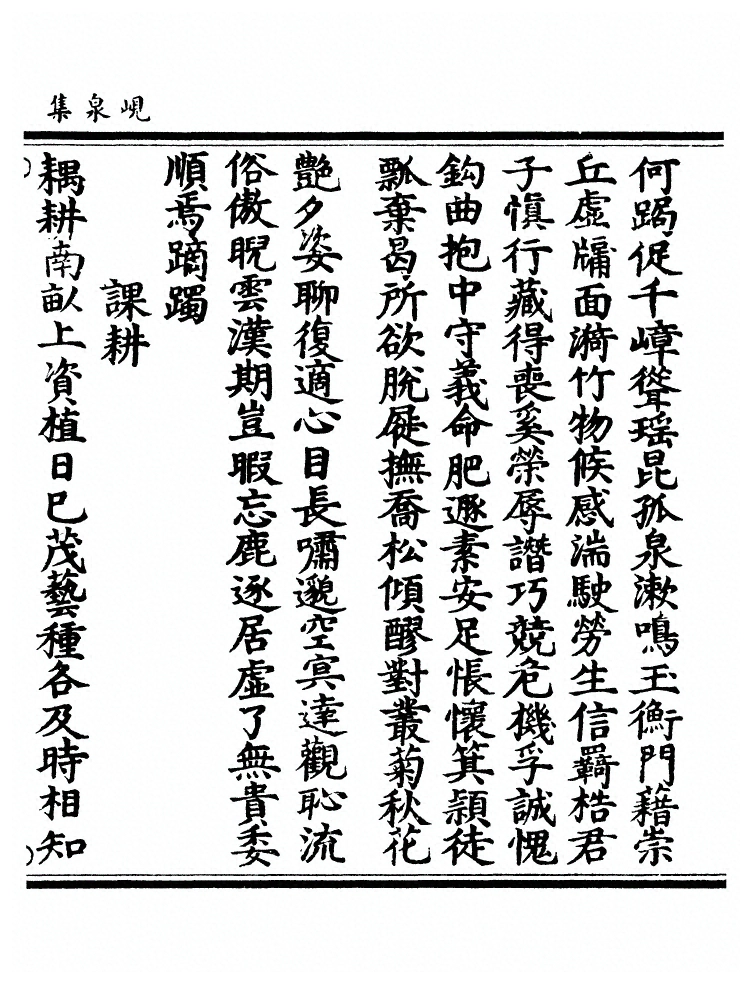 峴泉集
何跼促千嶂聳瑶昆孤泉漱鳴玉衡門藉崇
丘虛牖面漪竹物候感湍駛勞生信羇梏君
子慎行藏得喪奚榮辱譖巧競危機孚誠愧
鈎曲抱中守義命肥遯素安足悵懷箕穎徒
瓢棄曷所欲脫屣撫喬松傾醪對叢菊秋花
艷夕姿聊復適心目長嘯邈空㝠達觀恥流
俗傲睨雲漢期豈暇忘鹿逐居虛了無貴委
順焉蹢躅
課耕
耦耕南畝上資植日已茂藝種各及時相知